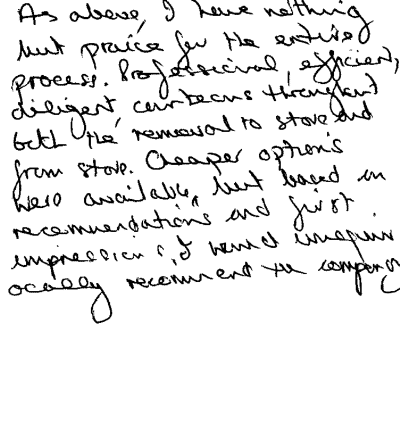 As above, I have nothing
but praise for the entire
process. Professional, efficient,
diligent, courteous throughout
both the removal to store and
from store. Cheaper options
were available, but based on
recommendations and first
impressions, I would unequiv
ocally recommend the company